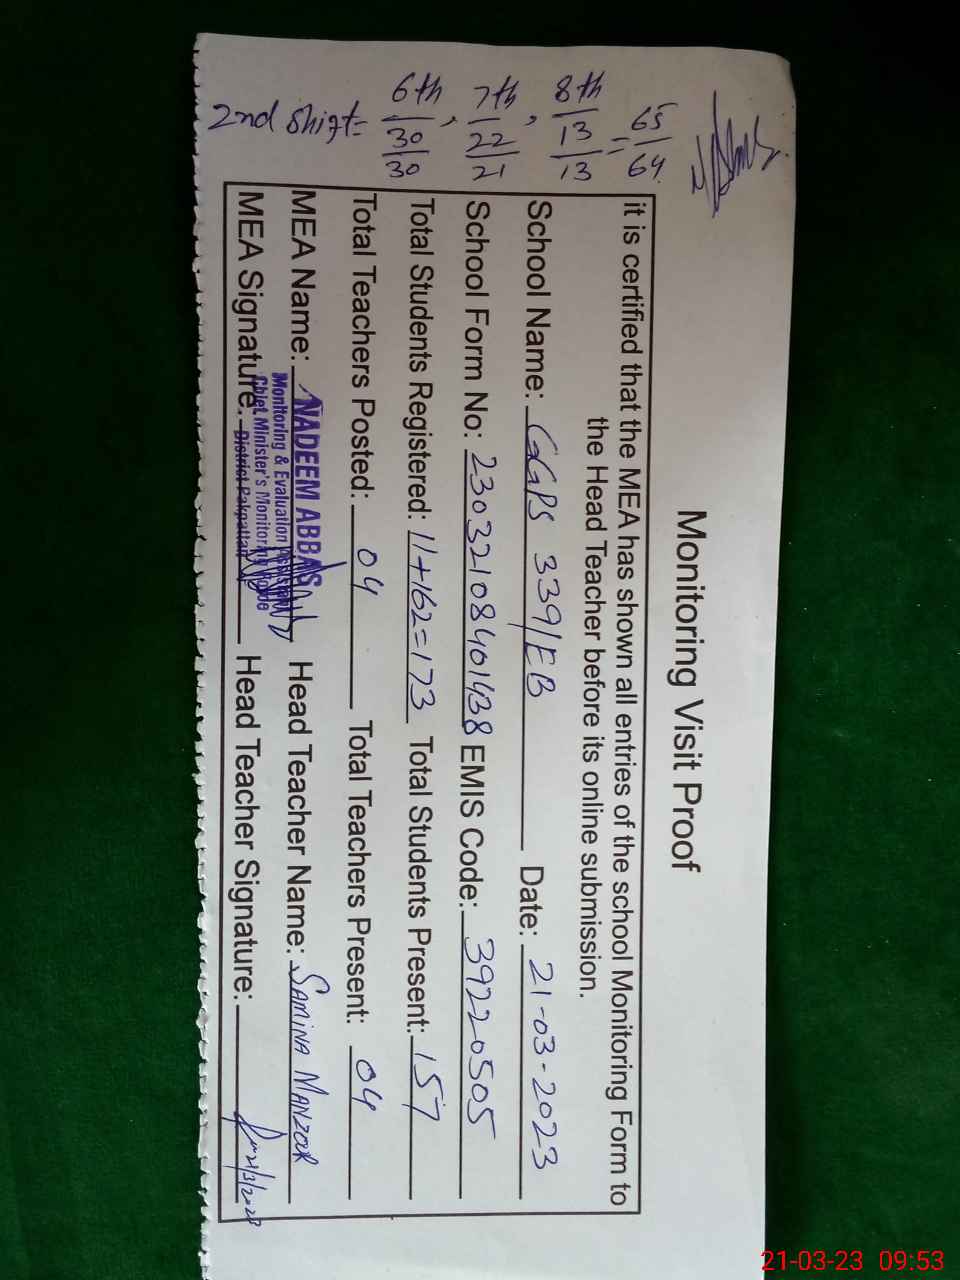 Monitoring Visit Proof
it is certified that the MEA has shown all entries of the school Monitoring Form to
the Head Teacher before its online submission.
School Name: GGPS 339/EB Date: 21-03-2023
School Form No: 23032108401438 EMIS Code: 39220505
Total Students Registered: 11+162=173 Total Students Present: 157
Total Teachers Posted: 04 Total Teachers Present: 04
MEA Name: NADEEM ABBAS Head Teacher Name: SAMINA MANZOOR
Monitoring & Evaluation Assistant
Chief Minister's Monitoring Force
District Pakpattan
MEA Signature: Head Teacher Signature: 21/3/2023
2nd Shift= 6th 30/30, 7th 22/21, 8th 13/13 = 65/64
21-03-23 09:53